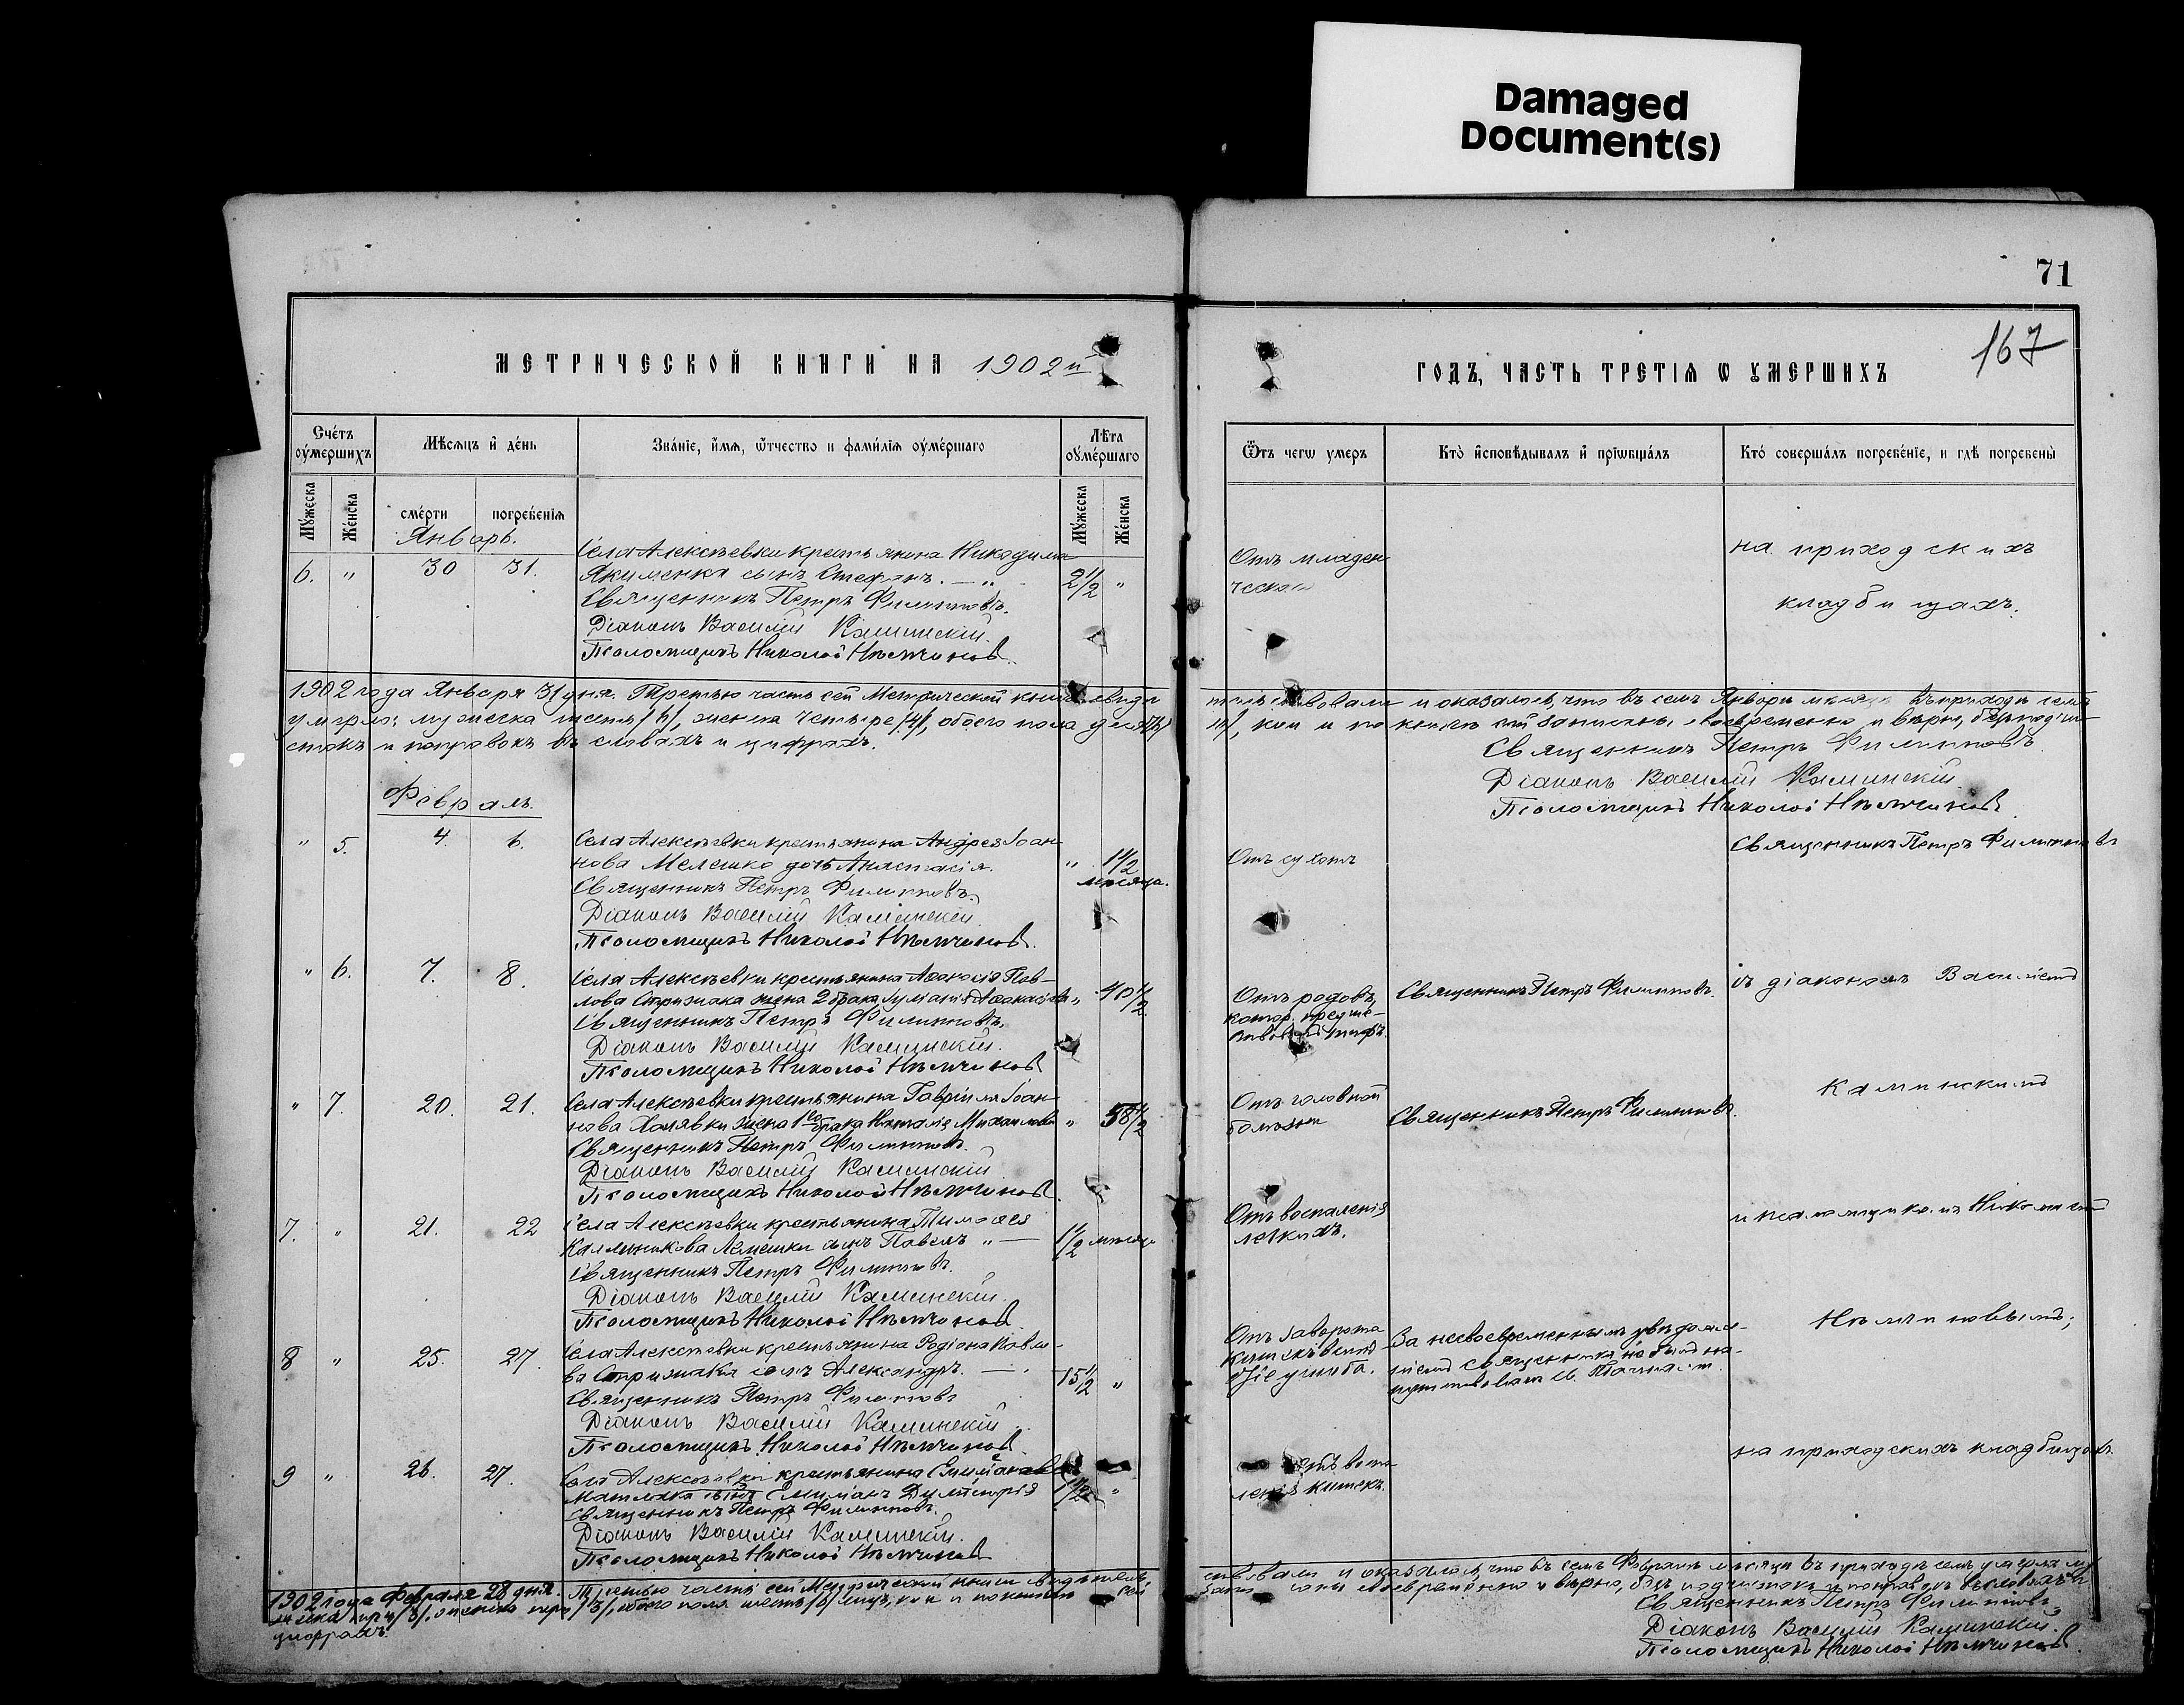 Damaged
Document(s)
71
167
МЕТРИЧЕСКОЙ КНИГИ НА 1902й
ГОДЪ, ЧАСТЬ ТРЕТІЯ Ѡ УМЕРШИХЪ
Счётъ оумершихъ
Мѣсяцъ и день
Званіе, имя, ѿчество и фамилія оумершаго
Лѣта оумершаго
Ѿтъ чегѡ умеръ
Кто исповѣдывалъ и пріѡбщалъ
Кто совершалъ погребеніе, и гдѣ погребены
Мужеска
Женска
смерти
погребенія
Мужеска
Женска
Январь.
6. " 30 31.
Села Алексѣевки крестьянина Никодима
Якименка сынъ Стефанъ. — "
2 1/2 "
Священникъ Петръ Филипповъ.
Діаконъ Василій Каминскій.
Псаломщикъ Николай Нѣмчиновъ.
Отъ младен
ческой
на приходскихъ
кладбищахъ.
1902 года Января 31 дня. Третью часть сей Метрической книги свидѣ
тельствовали и оказалось, что въ семъ Январѣ мѣсяцѣ въ приходѣ семъ
умерло: мужеска шесть /6/, женска четыре /4/, обоего пола десять
/10/, кои и по книгѣ сей записаны своевременно и вѣрно, безъ подчи-
стокъ и поправокъ въ словахъ и цифрахъ.
Священникъ Петръ Филипповъ
Діаконъ Василій Каминскій
Псаломщикъ Николай Нѣмчиновъ
Февраль.
" 5. 4. 6.
Села Алексѣевки крестьянина Андрея Іоан
нова Мелешко дочь Анастасія.
" 1 1/2
мѣсяца.
Священникъ Петръ Филипповъ.
Діаконъ Василій Каминскій
Псаломщикъ Николай Нѣмчиновъ.
Отъ сухотъ
Священникъ Петръ Филипповъ
" 6. 7. 8.
Села Алексѣевки крестьянина Аѳанасія Пав-
лова Стрижака жена 2 брака
" 40 1/2
Священникъ Петръ Филипповъ.
Діаконъ Василій Каминскій.
Псаломщикъ Николай Нѣмчиновъ
Отъ родовъ,
котор. предше-
ствовалъ тифъ.
Священникъ Петръ Филипповъ.
съ діакономъ Василіемъ
" 7. 20. 21.
Села Алексѣевки крестьянина Гавріила Іоан-
нова Халявки жена 1го брака Наталія Михаилова
" 58 1/2
Священникъ Петръ Филипповъ.
Діаконъ Василій Каминскій
Псаломщикъ Николай Нѣмчиновъ.
Отъ головной
болѣзни
Священникъ Петръ Филипповъ.
Каминскимъ
7. " 21. 22
Села Алексѣевки крестьянина Тимоѳея
Каллиникова Лемешки сынъ Павелъ " —
1/2 мѣсяца
Священникъ Петръ Филипповъ.
Діаконъ Василій Каминскій.
Псаломщикъ Николай Нѣмчиновъ.
Отъ воспаленія
легкихъ.
и псаломщикомъ Николаемъ
8 " 25. 27.
Села Алексѣевки крестьянина Родіона Павло-
ва Стрижака сынъ Александръ. —
15 1/2 "
Священникъ Петръ Филипповъ
Діаконъ Василій Каминскій
Псаломщикъ Николай Нѣмчиновъ.
Отъ заворота
кишекъ вслѣд-
ствіе ушиба.
За несвоевременнымъ увѣдомле-
ніемъ священника не былъ на-
путствованъ Св. Тайнами.
Нѣмчиновымъ;
9 " 26. 27.
Села Алексѣевки крестьянина
1 1/2 "
Священникъ Петръ Филипповъ.
Діаконъ Василій Каминскій.
Псаломщикъ Николай Нѣмчиновъ
Отъ воспа
ленія кишекъ.
на приходскихъ кладбищахъ.
1902 года Февраля 28 дня. Третью часть сей Метрической книги свидѣтель
ствовали и оказалось, что въ семъ Февралѣ мѣсяцѣ въ приходѣ семъ умерло му
жеска три /3/, женска три /3/, обоего пола шесть /6/ лицъ, кои и по книгѣ сей
записаны своевременно и вѣрно, безъ подчистокъ и поправокъ въ словахъ и
цифрахъ.
Священникъ Петръ Филипповъ
Діаконъ Василій Каминскій.
Псаломщикъ Николай Нѣмчиновъ.